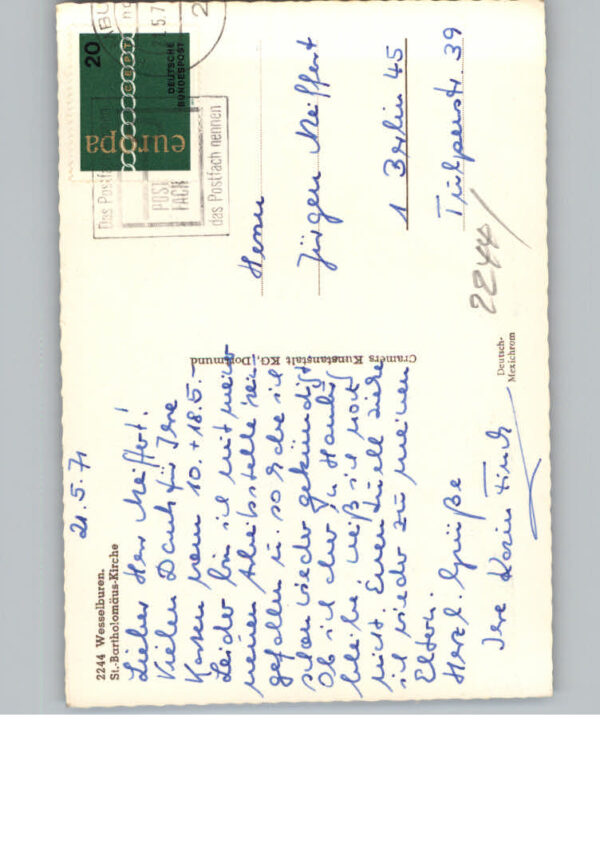 2244 Wesselburen.
St.-Bartholomäus-Kirche
21.5.71
Lieber Herr Meiffert!
Vielen Dank für Ihre
Karten vom 10. + 18.5.-
Leider bin ich mit meiner
neuen Arbeitsstelle rein-
gefallen u. so habe ich
schon wieder gekündigt
Ob ich aber in Hambg
bleibe, weiß ich noch
nicht. Eventuell ziehe
ich wieder zu meinen
Eltern.
Herzl. Grüße
Ihre Karin Finck
Cramers Kunstanstalt KG, Dortmund
Deutsch-
Mexichrom
20
DEUTSCHE
BUNDESPOST
europa
Das Postfach
POST
FACH
das Postfach nennen
Herrn
Jürgen Meiffert
1 Berlin 45
Tulpenstr. 39
2244